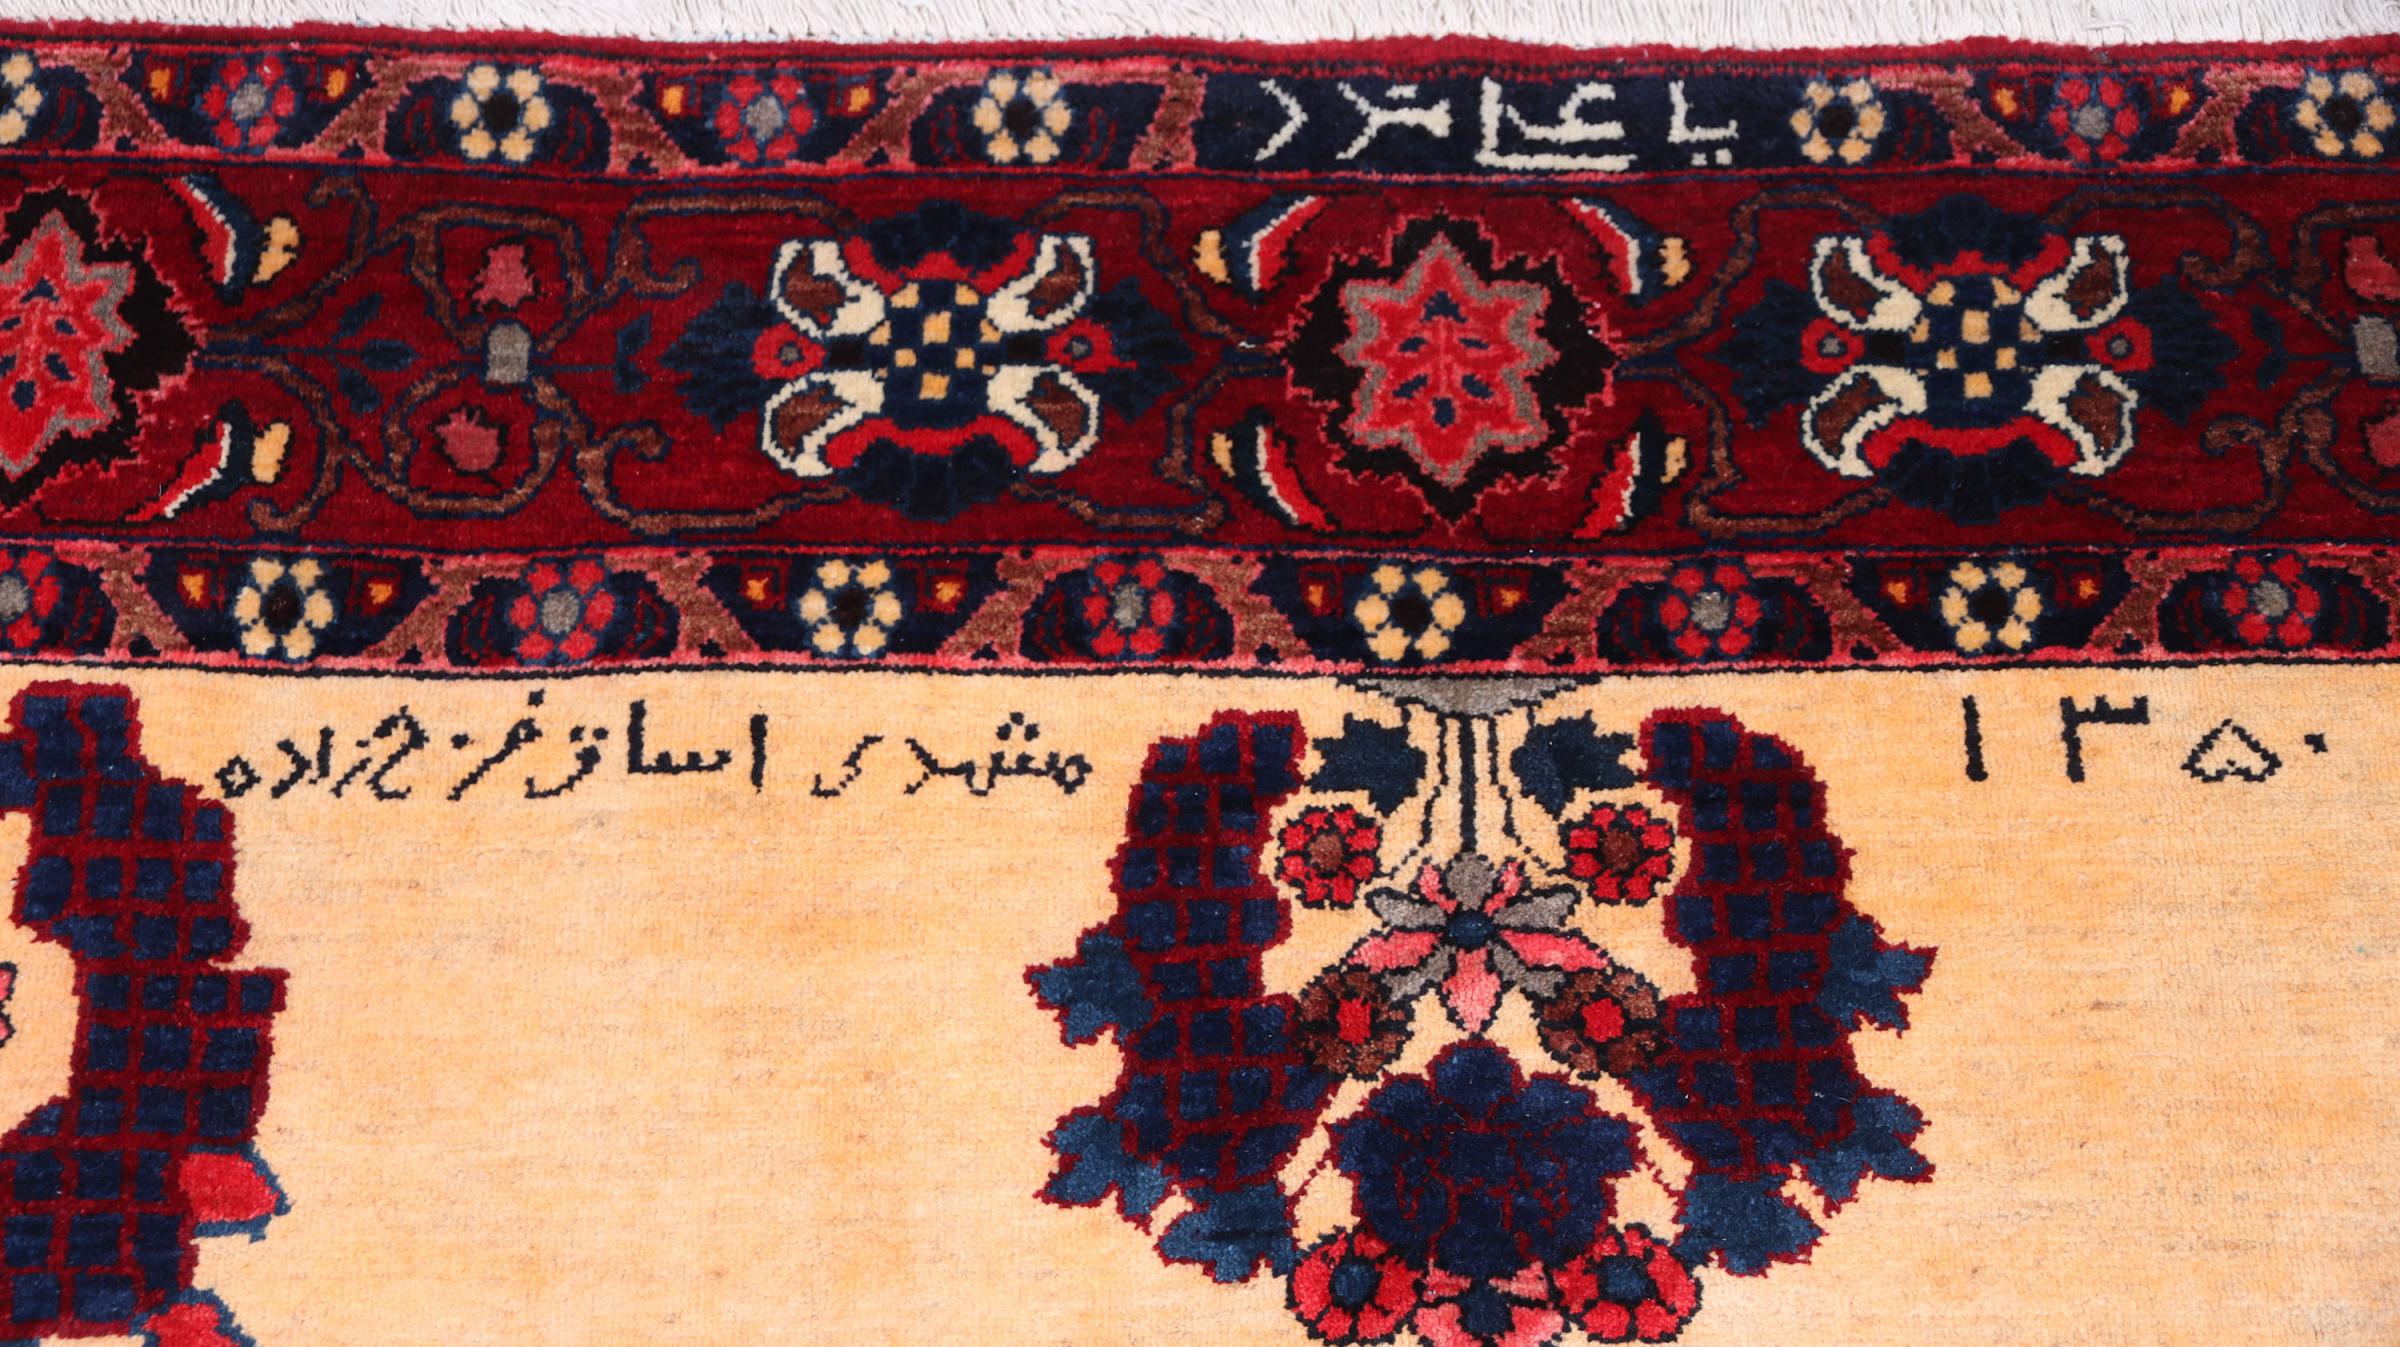 یا علی مدد
۱۳۵۰
مشهدی اساق فرج زاده